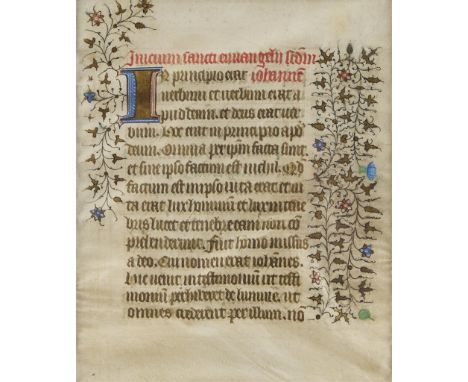 Inicium sancti euuangelii scdm
In principio erat iohannē
uerbum et uerbum erat a
pud deum. et deus erat uer
bum. hoc erat in principio apd
deum. Omnia per ipm facta sunt.
et sine ipso factum est nichil. Qd
factum est in ipso uita erat et ui
ta erat lux hominum et lux in tene
bris lucet et tenebre eam non cō
prehenderunt. Fuit homo missus
a deo. Cui nomen erat iohānes.
hic uenit in testimonium ut testi
monium perhiberet de lumine. ut
omnes crederent per illum. nō